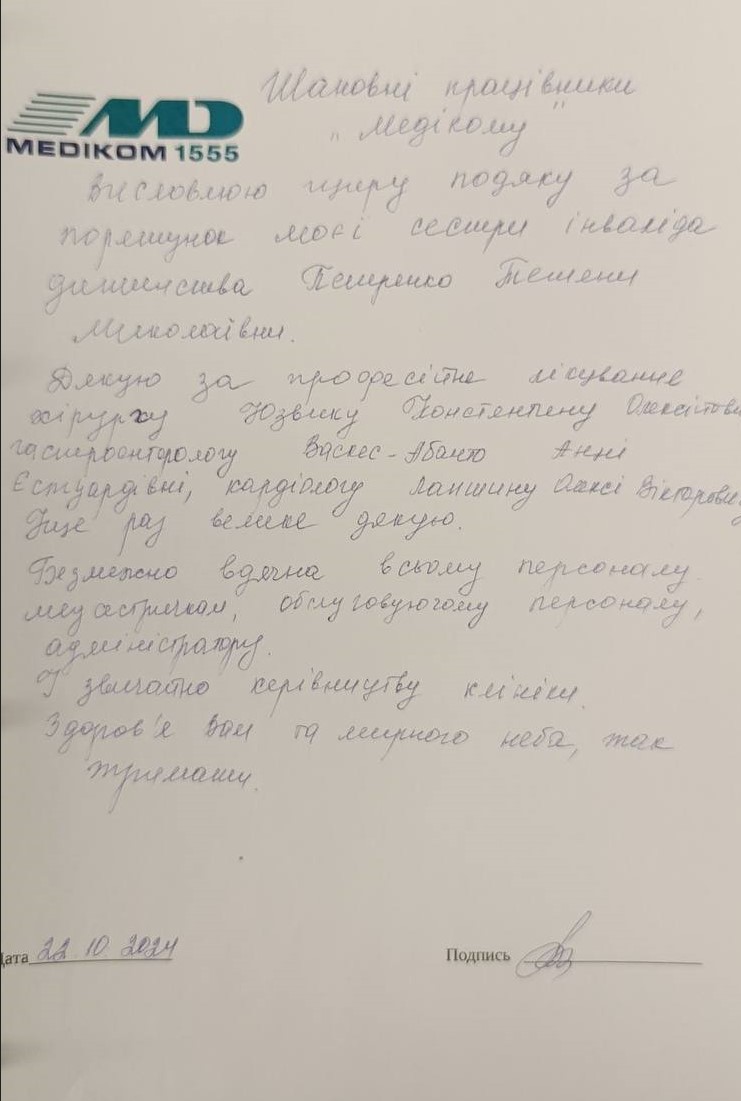 MEDIKOM 1555
Шановні працівники
„Медікому"
Висловлюю щиру подяку за
порятунок моєї сестри інваліда
дитинства Петренко Тетяни
Миколаївни.
Дякую за професійне лікування
хірургу Юзвику Костянтину
гастроентерологу Васкес-Абанто Анні
Естуардівні, кардіологу Лапшину Олексі Вікторович
Іще раз велике дякую.
Безмежно вдячна всьому персоналу
медсестричкам, обслуговуючому персоналу,
адміністратору.
І звичайно керівництву клініки.
Здоров'я Вам та мирного неба, так
тримати.
Дата 22.10.2024
Подпись